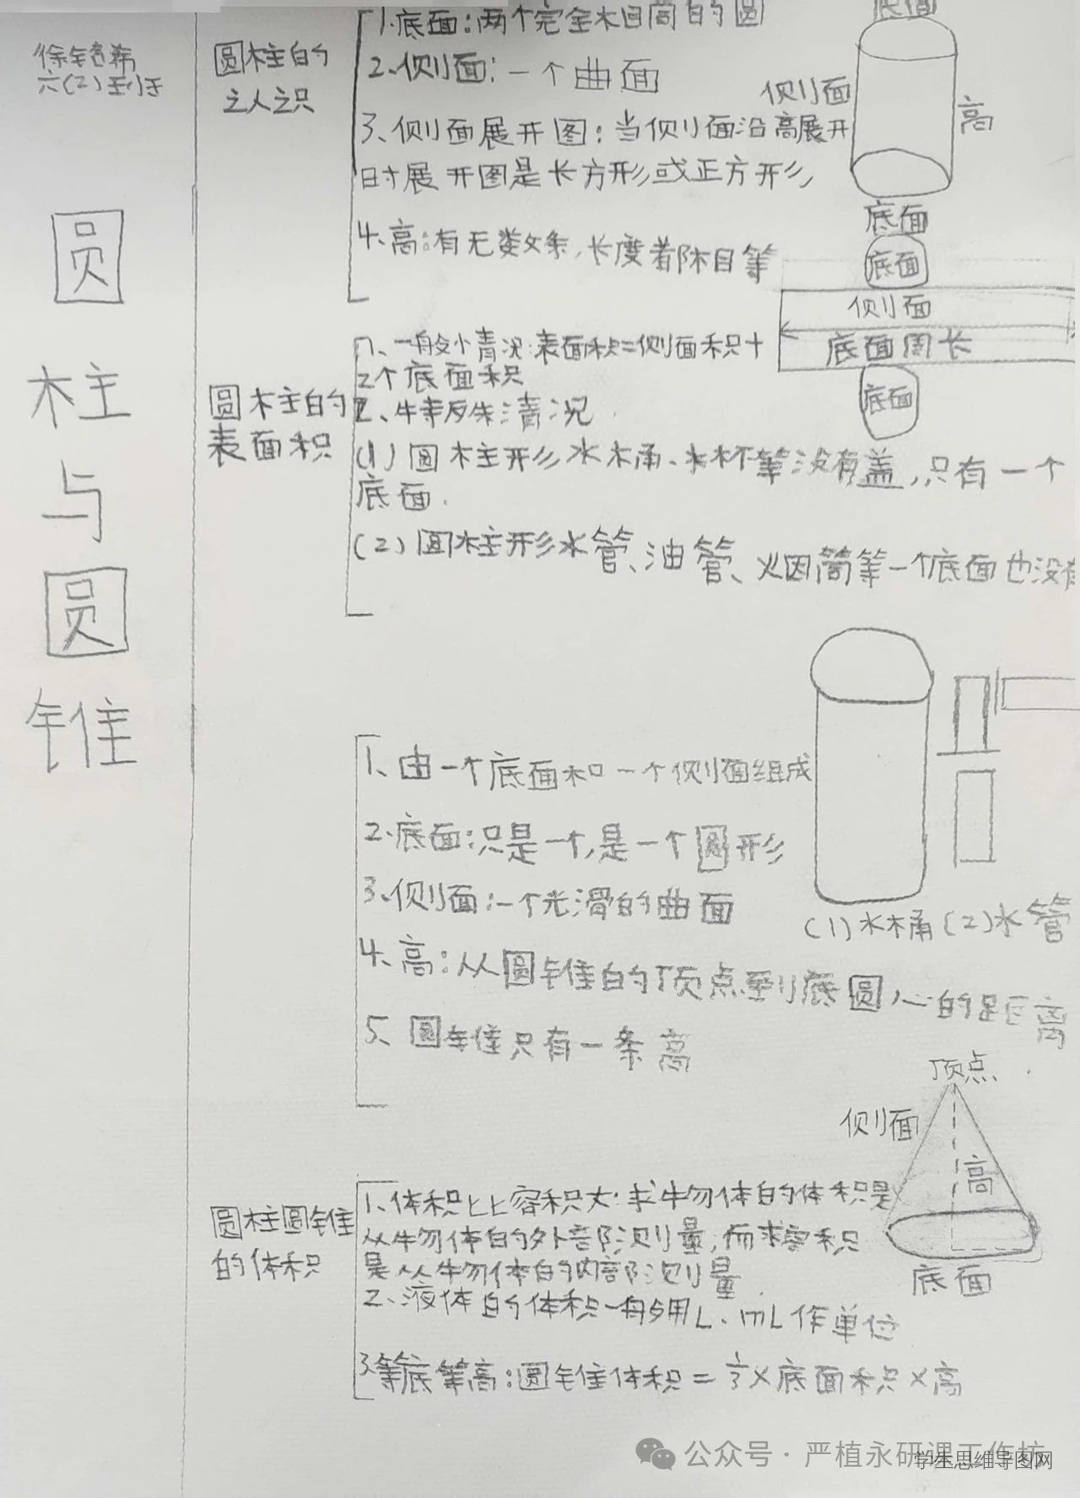 六(2)班
圆柱与圆锥
圆柱的
认识
1.底面:两个完全相同的圆
2.侧面:一个曲面
3、侧面展开图:当侧面沿高展开
时展开图是长方形或正方形
4.高:有无数条,长度都相等
底面
侧面
高
底面
底面
侧面
底面周长
底面
圆柱的
表面积
1、一般情况:表面积=侧面积+
2个底面积
2、特殊情况
(1)圆柱形水桶、水杯等没有盖,只有一个
底面.
(2)圆柱形水管、油管、烟筒等一个底面也没有
1、由一个底面和一个侧面组成
2.底面:只是一个,是一个圆形
3.侧面:一个光滑的曲面
4、高:从圆锥的顶点到底圆心的距离
5、圆锥只有一条高
(1)水桶(2)水管
顶点
侧面
高
底面
圆柱圆锥
的体积
1、体积比容积大:求物体的体积是
从物体的外部测量,而求容积
是从物体的内部测量.
2、液体的体积一般用L、mL作单位
3.等底等高:圆锥体积=⅓×底面积×高
公众号·严植永研课工作坊
学生思维导图网